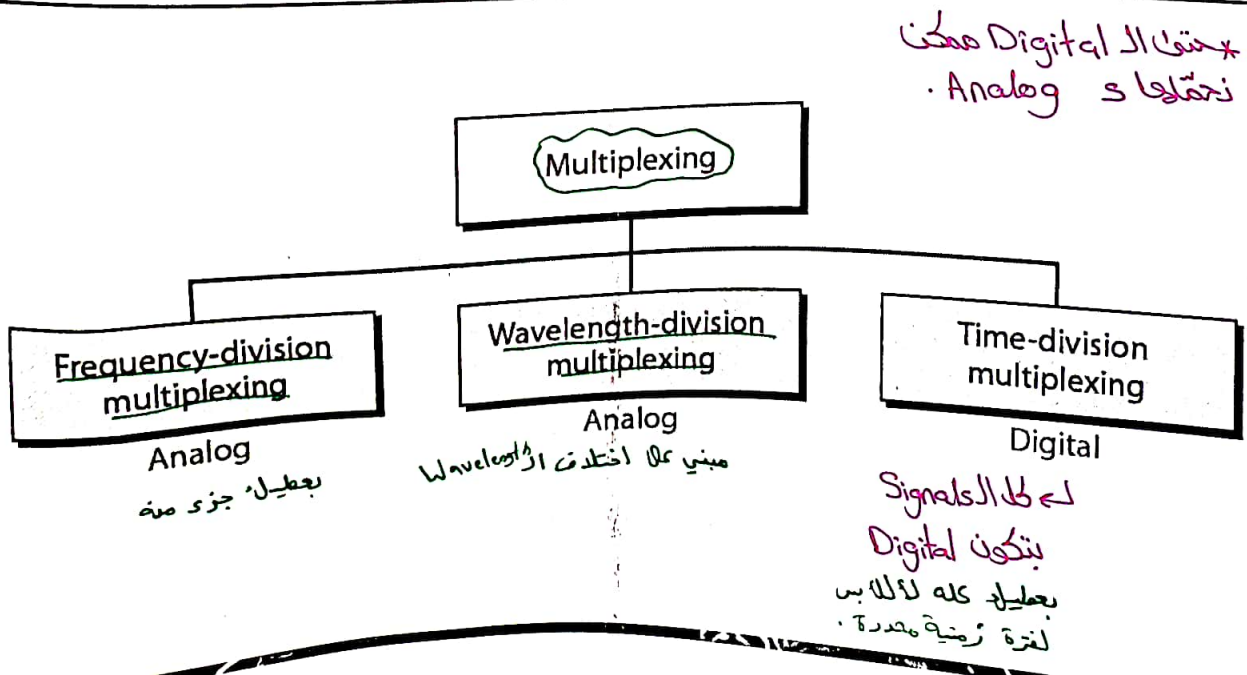 * حتى الـ Digital ممكن
نحمّلها Analog .
Multiplexing
Frequency-division
multiplexing
Analog
بعطيك جزء منه
Wavelength-division
multiplexing
Analog
مبني على اختلاف الـ Wavelength
Time-division
multiplexing
Digital
كل الـ Signals
بتكون Digital
بعطيك كله بس
لفترة زمنية محددة .